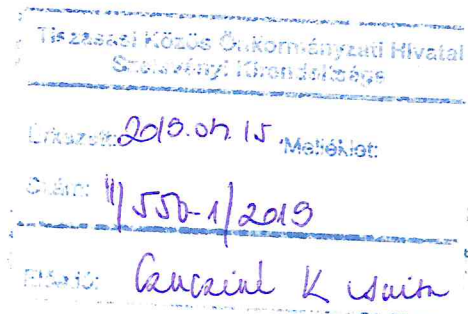 Tiszasasi Közös Önkormányzati Hivatal
Szelevényi Kirendeltsége
Érkezett: 2019.04.15. Melléklet:
Szám: II/550-1/2019
Előadó: K